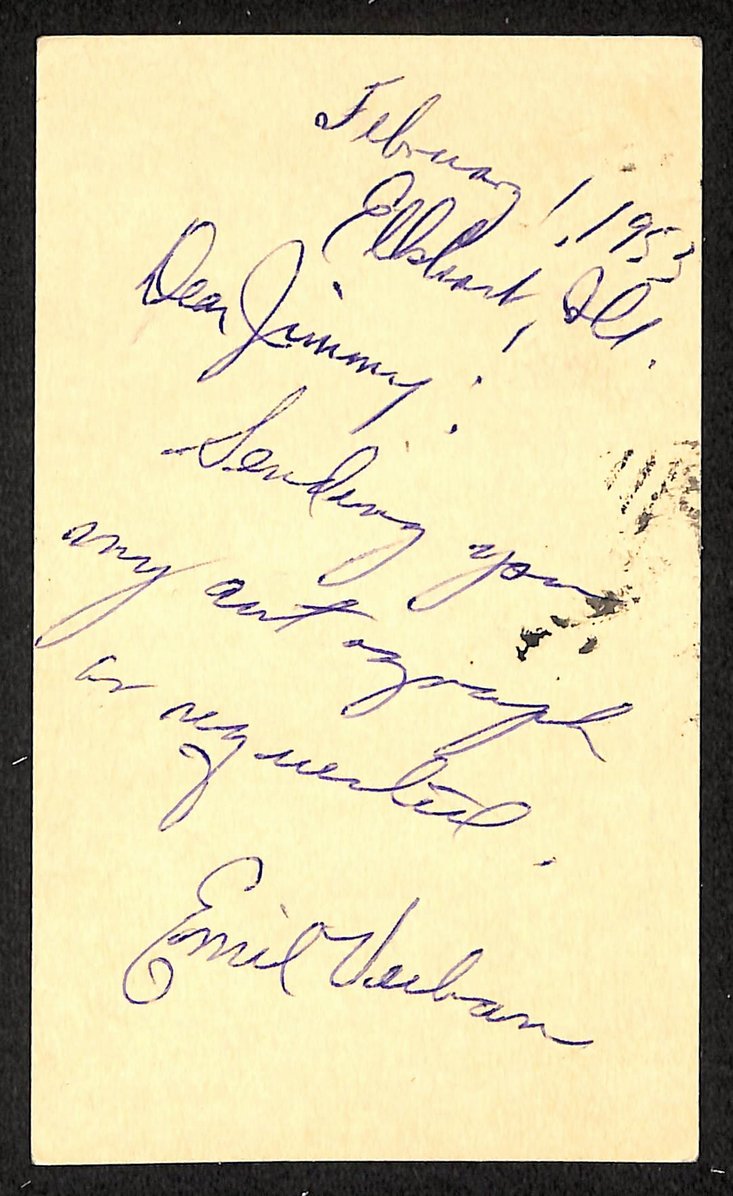 February 1, 1953
Elkhart, Ill.
Dear Jimmy:
Sending you
my autograph
as requested.
Emil Verban